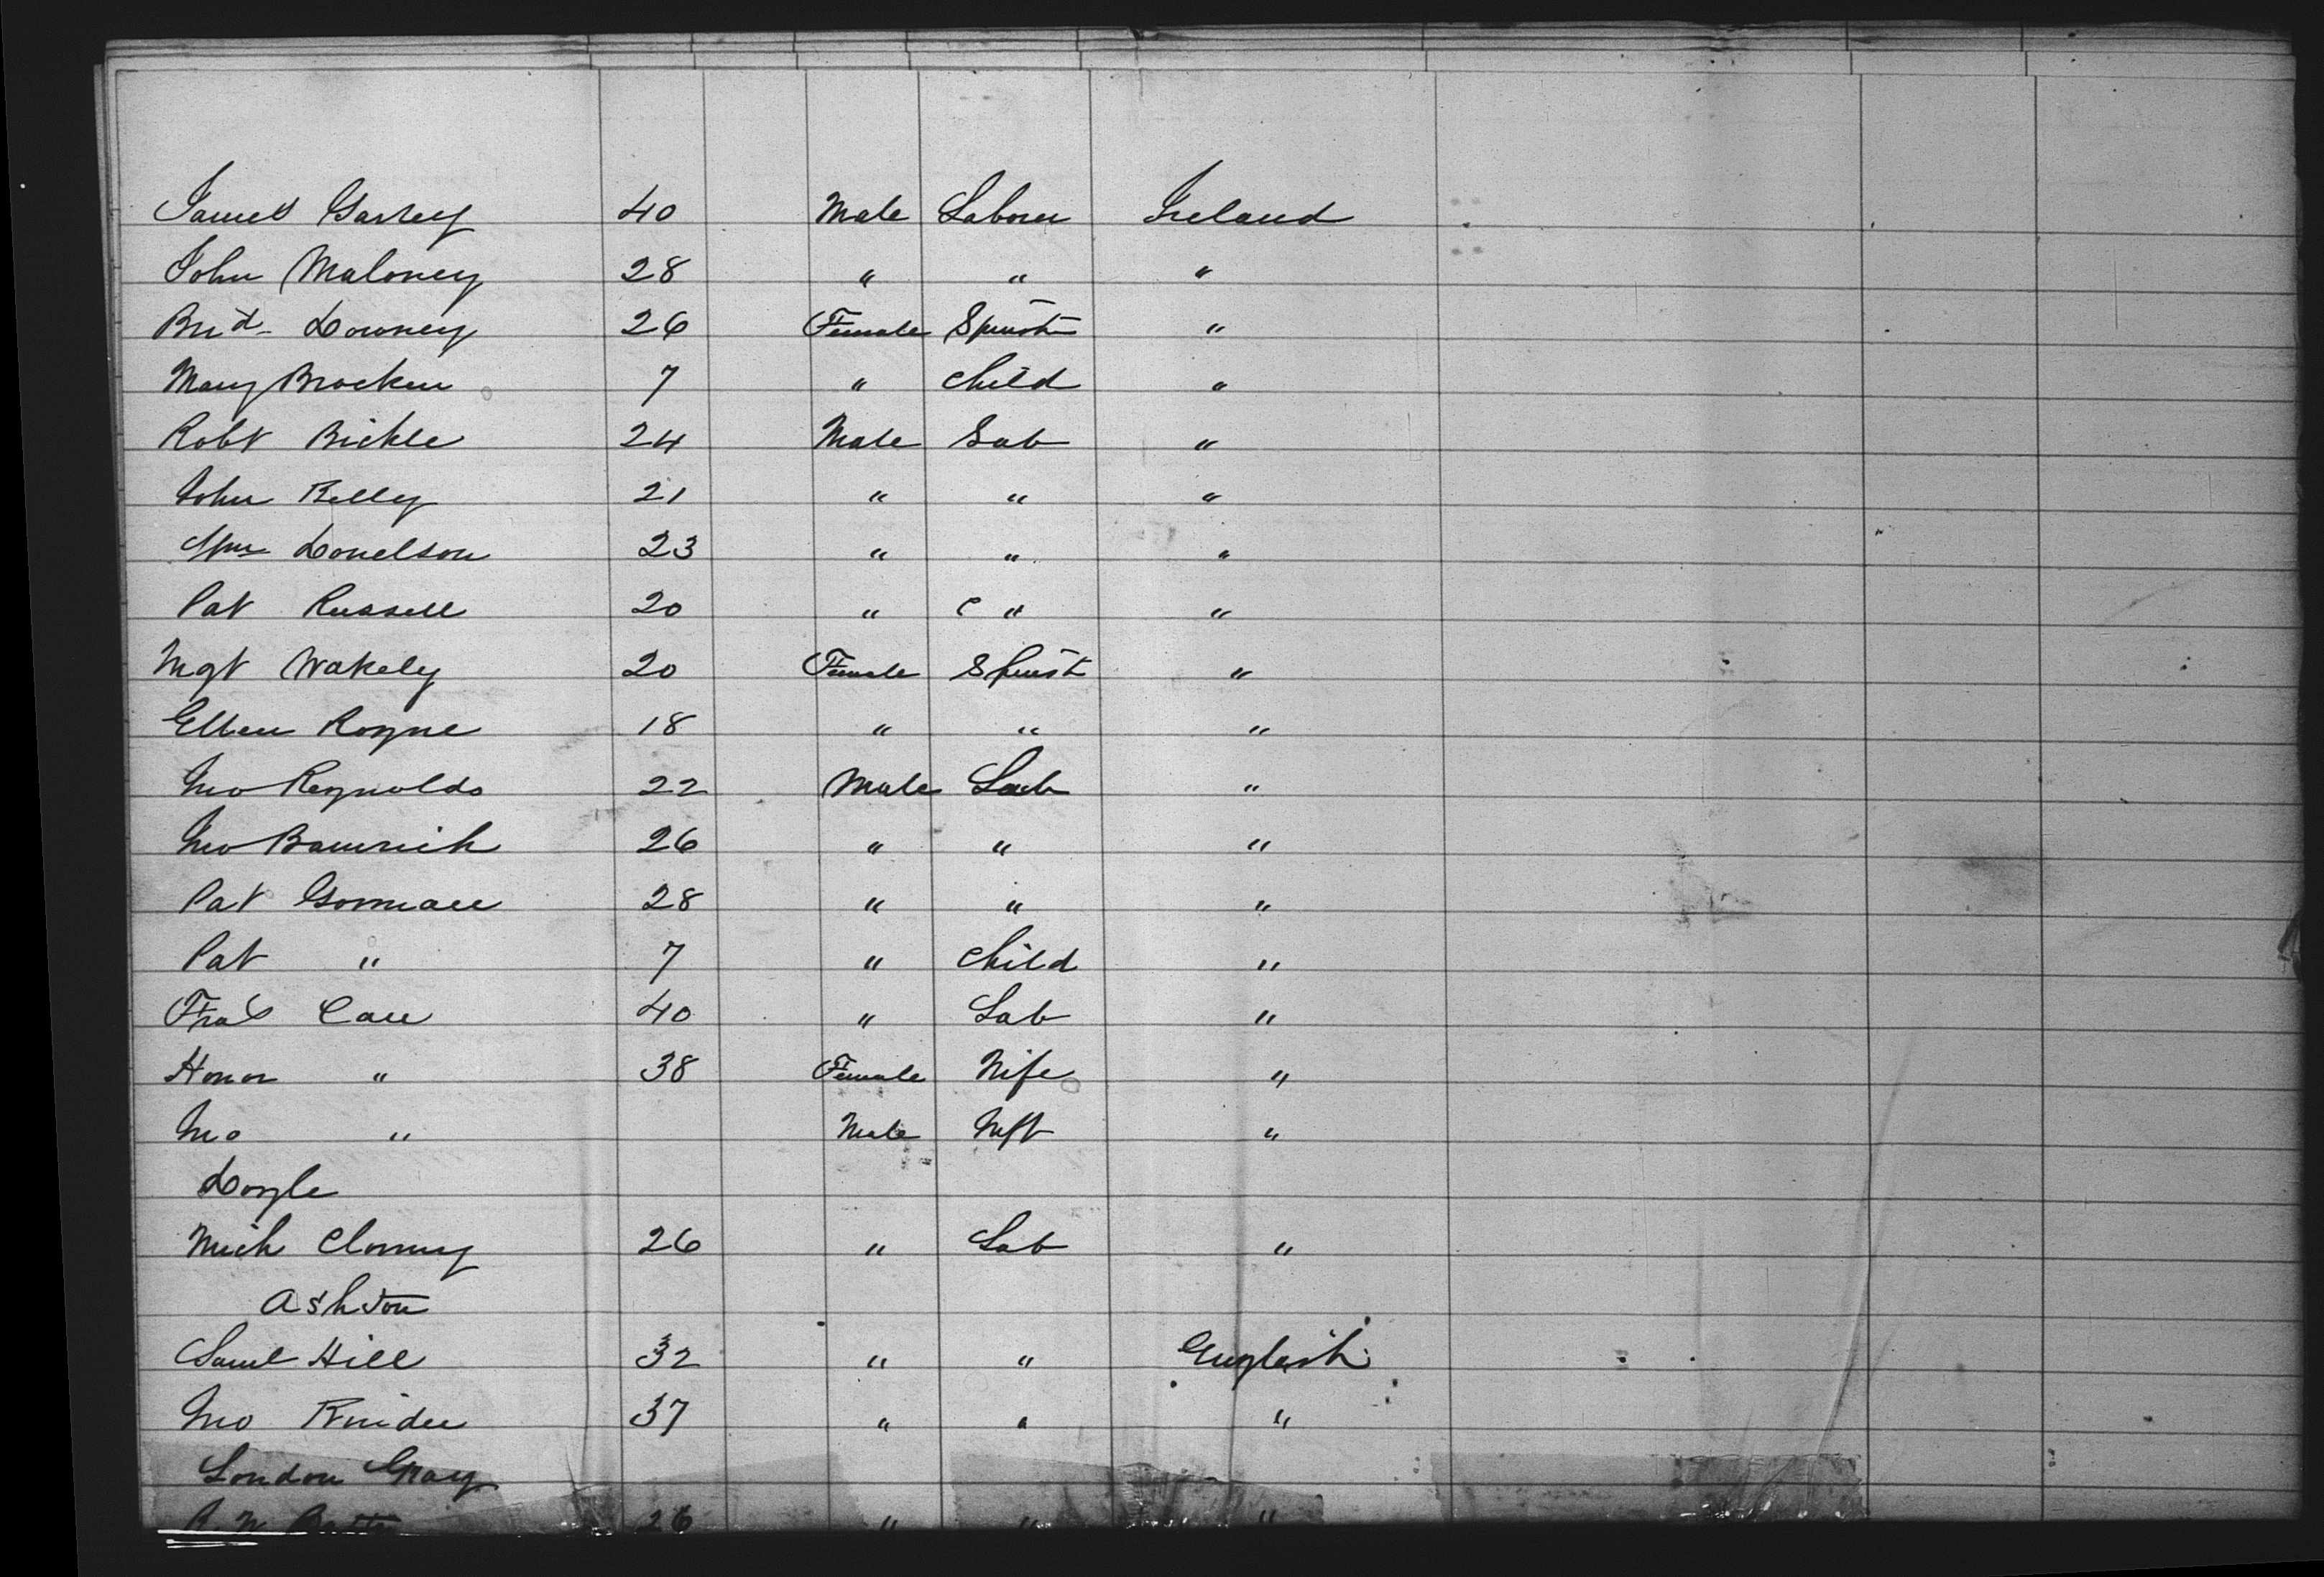 James Garvey 40 Male Laborer Ireland
John Maloney 28 " " "
Brid Downey 26 Female Spinst "
Mary Bracken 7 " Child "
Robt Bickle 24 Male Lab "
John Kelly 21 " " "
Wm Donelson 23 " " "
Pat Russell 20 " " "
Mgt Wakely 20 Female Spinst "
Ellen Rogne 18 " " "
Jno Reynolds 22 Male Lab "
Jno 26 " " "
Pat Gorman 28 " " "
Pat " 7 " Child "
Fras 40 " Lab "
Honor " 38 Female Wife "
Jno " Male Inft "
Doyle
Mich 26 " Lab "
Ashton
Saml Hill 32 " " English
Jno 37 " " "
London Gray
26 " " "